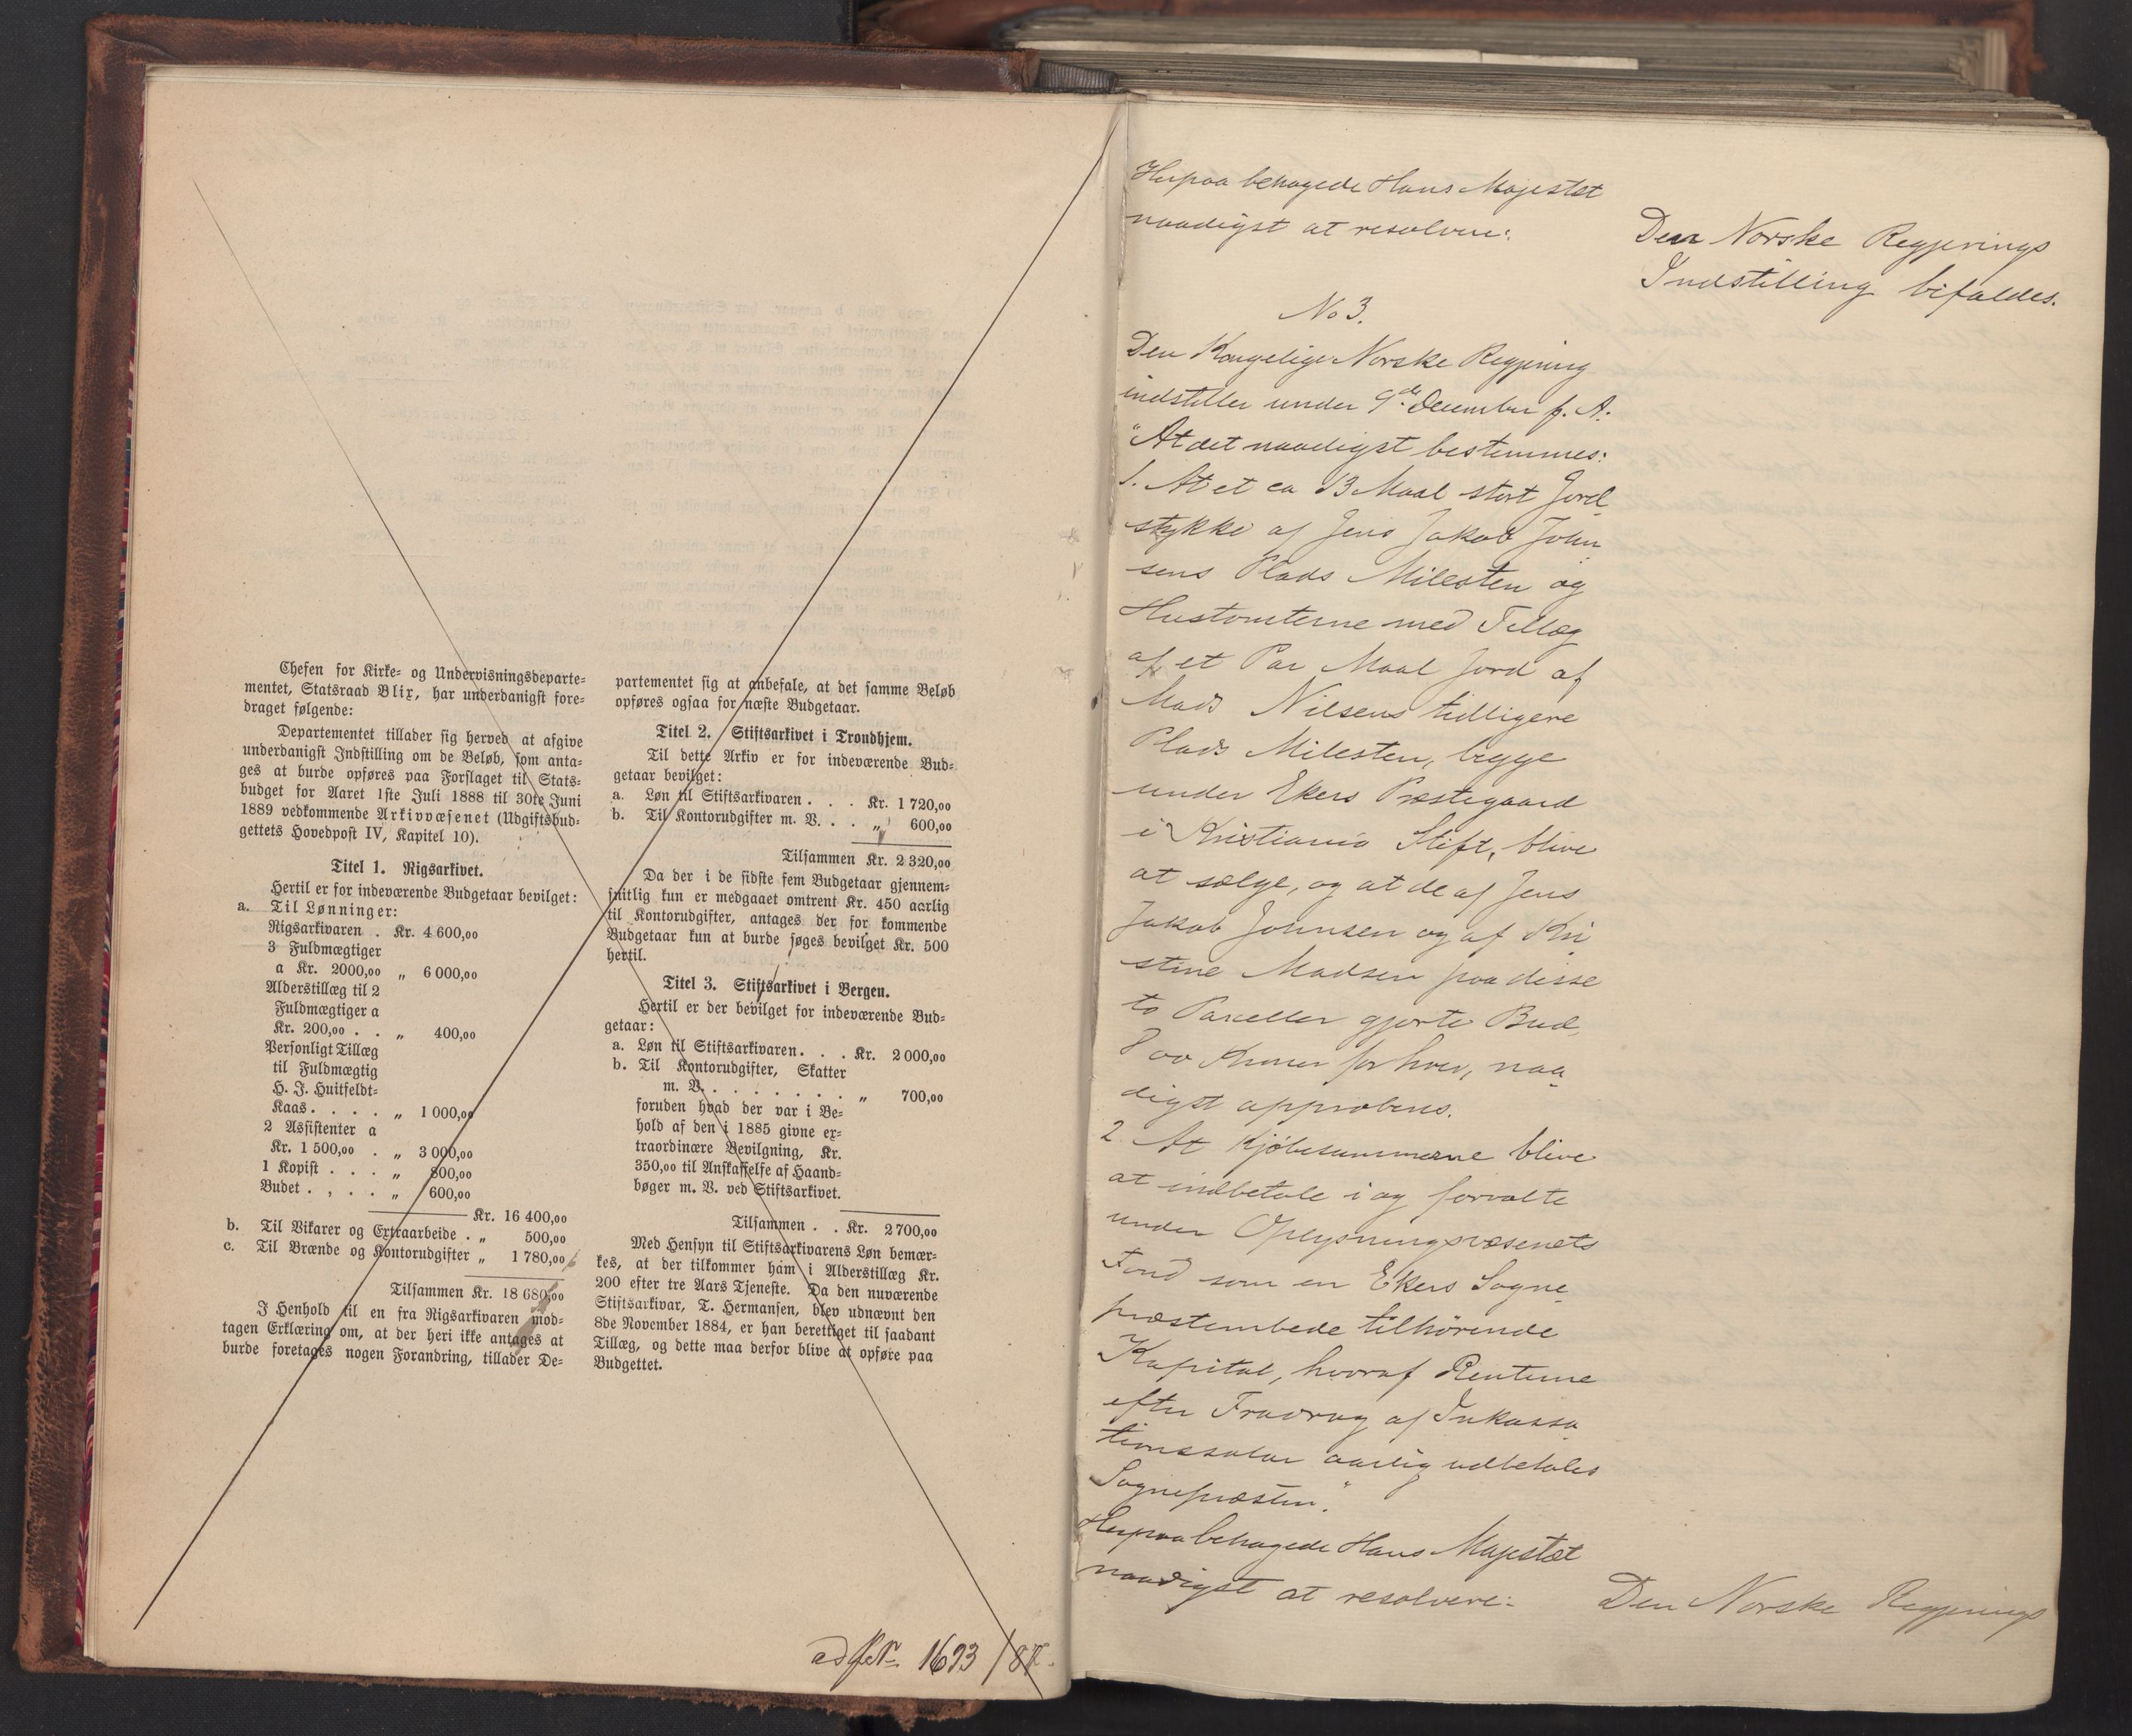 Chefen for Kirke- og Undervisningsdeparte-
mentet, Statsraad Blix, har underdanigst fore-
draget følgende:
Departementet tillader sig herved at afgive
underdanigst Indstilling om de Beløb, som anta-
ges at burde opføres paa Forslaget til Stats-
budget for Aaret 1ste Juli 1888 til 30te Juni
1889 vedkommende Arkivvæsenet (Udgiftsbud-
gettets Hovedpost IV, Kapitel 10).
Titel 1. Rigsarkivet.
Hertil er for indeværende Budgetaar bevilget:
a. Til Lønninger:
Rigsarkivaren . Kr. 4 600,00
3 Fuldmægtiger
a Kr. 2000,00 „ 6 000,00
Alderstillæg til 2
Fuldmægtiger a
Kr. 200,00 . . „ 400,00
Personligt Tillæg
til Fuldmægtig
H. J. Huitfeldt-
Kaas . . . . „ 1 000,00
2 Assistenter a
Kr. 1 500,00 . „ 3 000,00
1 Kopist . . . „ 800,00
Budet . , . . „ 600,00
Kr. 16 400,00
b. Til Vikarer og Extraarbeide . „ 500,00
c. Til Brænde og Kontorudgifter „ 1 780,00
Tilsammen Kr. 18 680,00
I Henhold til en fra Rigsarkivaren mod-
tagen Erklæring om, at der heri ikke antages at
burde foretages nogen Forandring, tillader De-
partementet sig at anbefale, at det samme Beløb
opføres ogsaa for næste Budgetaar.
Titel 2. Stiftsarkivet i Trondhjem.
Til dette Arkiv er for indeværende Bud-
getaar bevilget:
a. Løn til Stiftsarkivaren . . . Kr. 1 720,00
b. Til Kontorudgifter m. V. . . „ 600,00
Tilsammen Kr. 2 320,00
Da der i de sidste fem Budgetaar gjennem-
snitlig kun er medgaaet omtrent Kr. 450 aarlig
til Kontorudgifter, antages der for kommende
Budgetaar kun at burde søges bevilget Kr. 500
hertil.
Titel 3. Stiftsarkivet i Bergen.
Hertil er der bevilget for indeværende Bud-
getaar:
a. Løn til Stiftsarkivaren. . . Kr. 2 000,00
b. Til Kontorudgifter, Skatter
m. V. . . . . . . . „ 700,00
foruden hvad der var i Be-
hold af den i 1885 givne ex-
traordinære Bevilgning, Kr.
350,00 til Anskaffelse af Haand-
bøger m. V. ved Stiftsarkivet.
Tilsammen . . Kr. 2 700,00
Med Hensyn til Stiftsarkivarens Løn bemær-
kes, at der tilkommer ham i Alderstillæg Kr.
200 efter tre Aars Tjeneste. Da den nuværende
Stiftsarkivar, T. Hermansen, blev udnævnt den
8de November 1884, er han berettiget til saadant
Tillæg, og dette maa derfor blive at opføre paa
Budgettet.
1693
Herpaa behagede Hans Majestet
naadigst at resolvere:
Den Norske Regjerings
Indstilling bifaldes.
No 3.
Den Kongelige Norske Regjering
indstiller under 9de December f. A.
"At det naadigst bestemmes:
1. At et ca 13 Maal stort Jord-
stykke af Jens Jakob John
sens Plads Milesten og
Hustomterne med Tillæg
af et Par Maal Jord af
Mads Nilsens tidligere
Plads Milesten, begge
under Ekers Præstegaard
i Kristiania Stift, blive
at sælge, og at de af Jens
Jakob Johnsen og af Kri
stine Madsen paa disse
to Parceller gjorte Bud,
800 Kroner for hver, naa
digst approberes.
2. At Kjøbesummerne blive
at indbetale i og forvalte
under Oplysningsvæsenets
Fond som en Ekers Sogne
præstembede tilhørende
Kapital, hvoraf Renterne
efter Fradrag af Inkassa
tionssalær aarlig udbetales
Sognepræsten."
Herpaa behagede Hans Majestæt
naadigst at resolvere:
Den Norske Regjerings